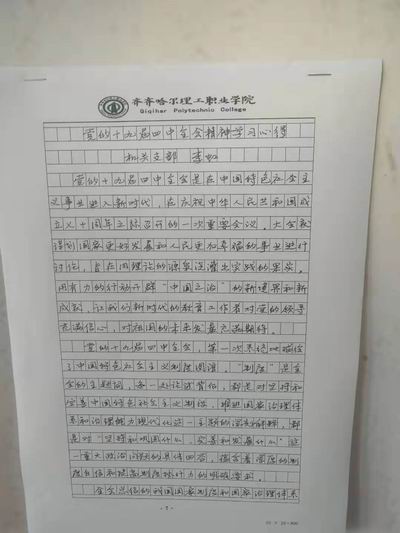 齐齐哈尔理工职业学院
Qiqihar Polytechnic College
党的十九届四中全会精神学习心得
机关支部 李
党的十九届四中全会是在中国特色社会主
义事业进入新时代,在庆祝中华人民共和国成
立七十周年之际召开的一次重要会议。大会就
国家更好发展和人民更加幸福的事业进行
讨论,旨在用理论的源泉浇灌出实践的果实,
用有力的行动开辟“中国之治”的新境界和新
成就,让我们新时代的教育工作者对党的领导
充满信心,对祖国的未来发展充满期待。
党的十九届四中全会,第一次系统地描绘
了中国特色社会主义制度图谱。“制度”是全
会的主题词,每一处论述背后,都是对坚持和
完善中国特色社会主义制度、推进国家治理体
系和治理能力现代化这一主题的深刻解释,都
是对“坚持和巩固什么、完善和发展什么”这
一重大政治问题的具体回答,蕴含着深厚的制
度自信和提高制度执行力的明确要求。
全会总结的我国国家制度和国家治理体系
- 1 -
20 × 20 = 400